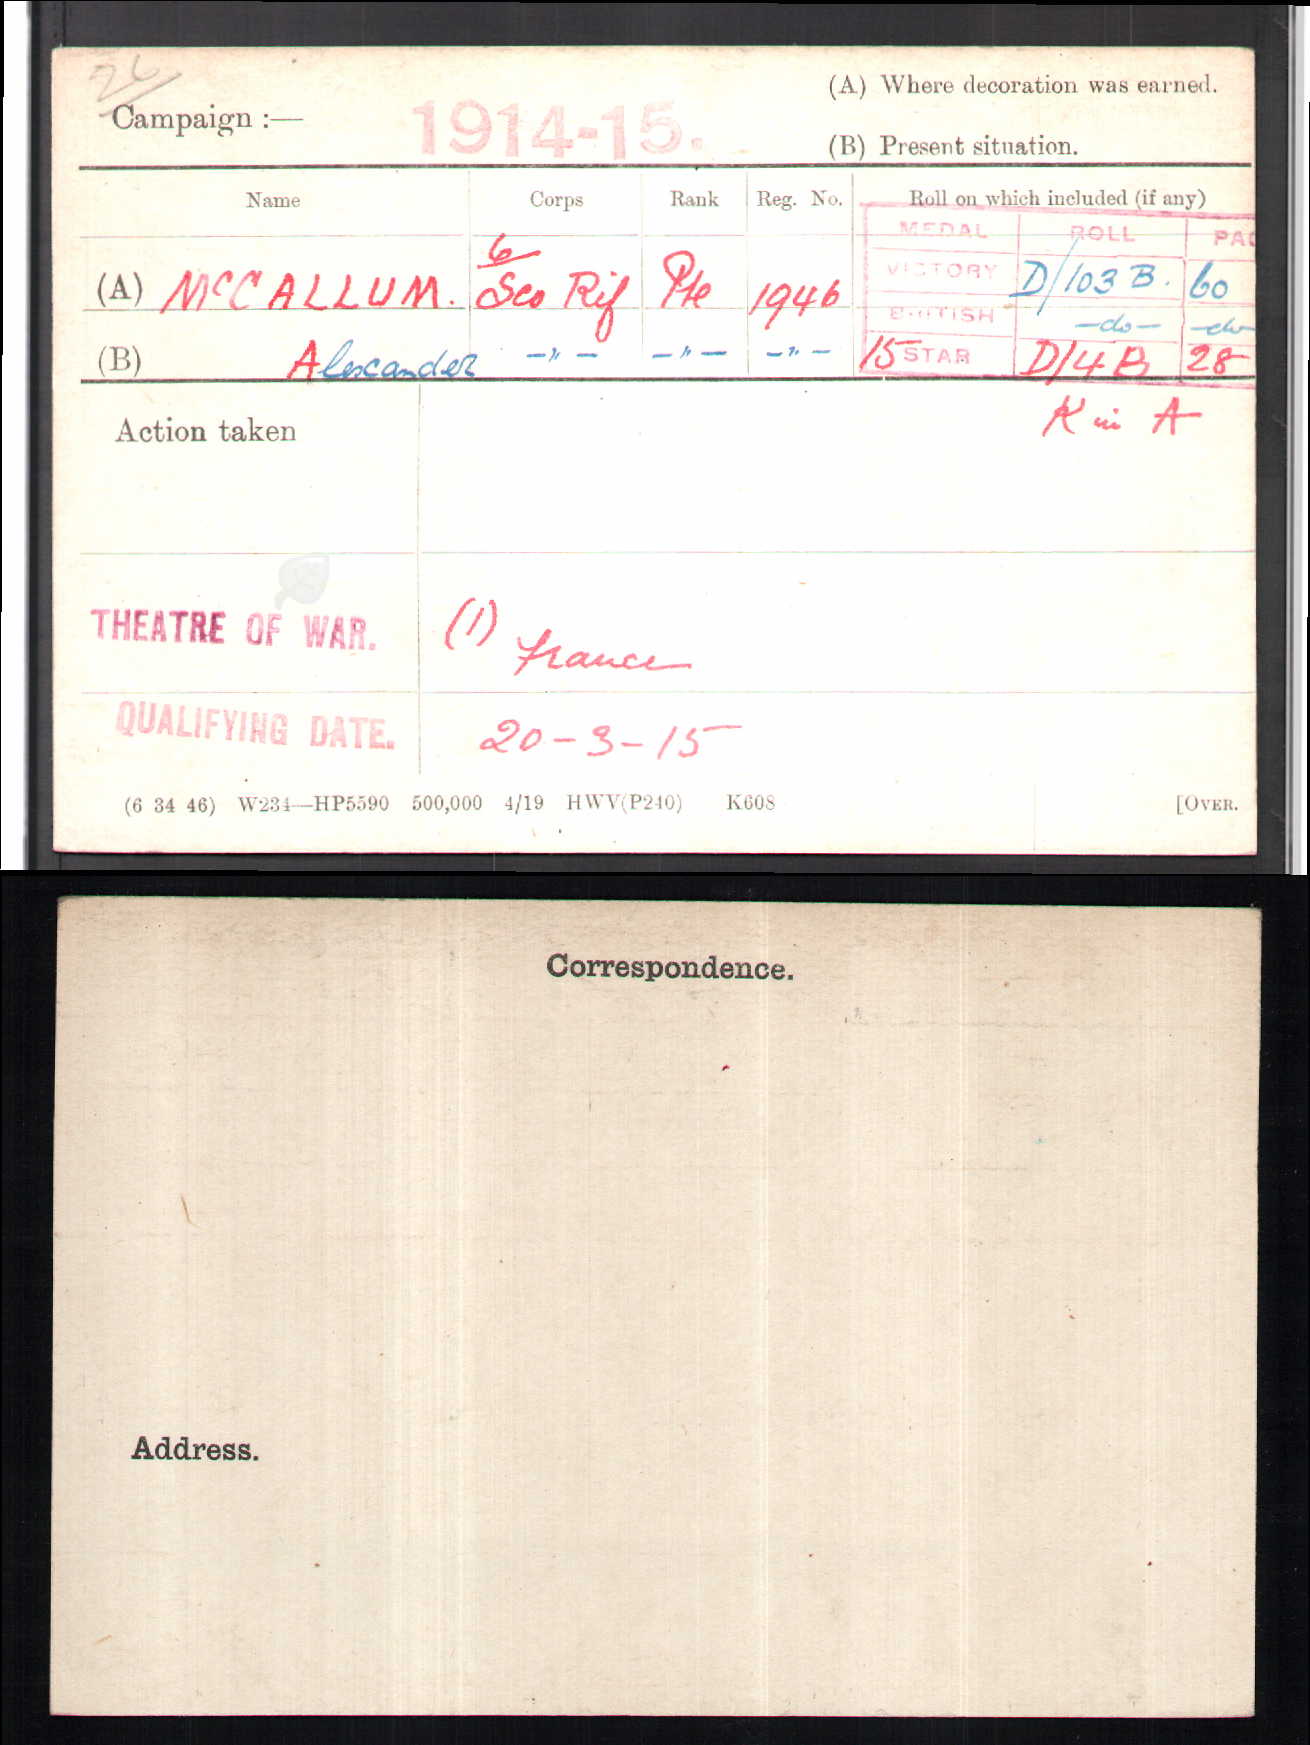 26
Campaign :—
1914-15.
(A) Where decoration was earned.
(B) Present situation.
Name Corps Rank Reg. No. Roll on which included (if any)
MEDAL ROLL PAG
(A) McCALLUM. 6 Sco Rif Pte 1946 VICTORY D/103 B. 60
BRITISH -do- -do-
(B) Alexander -"- -"- -"- 15 STAR D/4 B 28
Action taken
K in A
THEATRE OF WAR. (1) France
QUALIFYING DATE. 20-3-15
(6 34 46) W234—HP5590 500,000 4/19 HWV(P240) K608 [OVER.
Correspondence.
Address.